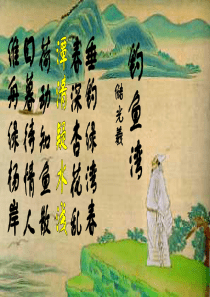 钓鱼湾
储光羲
垂钓绿湾春
春深杏花乱
潭清疑水浅
荷动知鱼散
日暮待情人
维舟绿杨岸